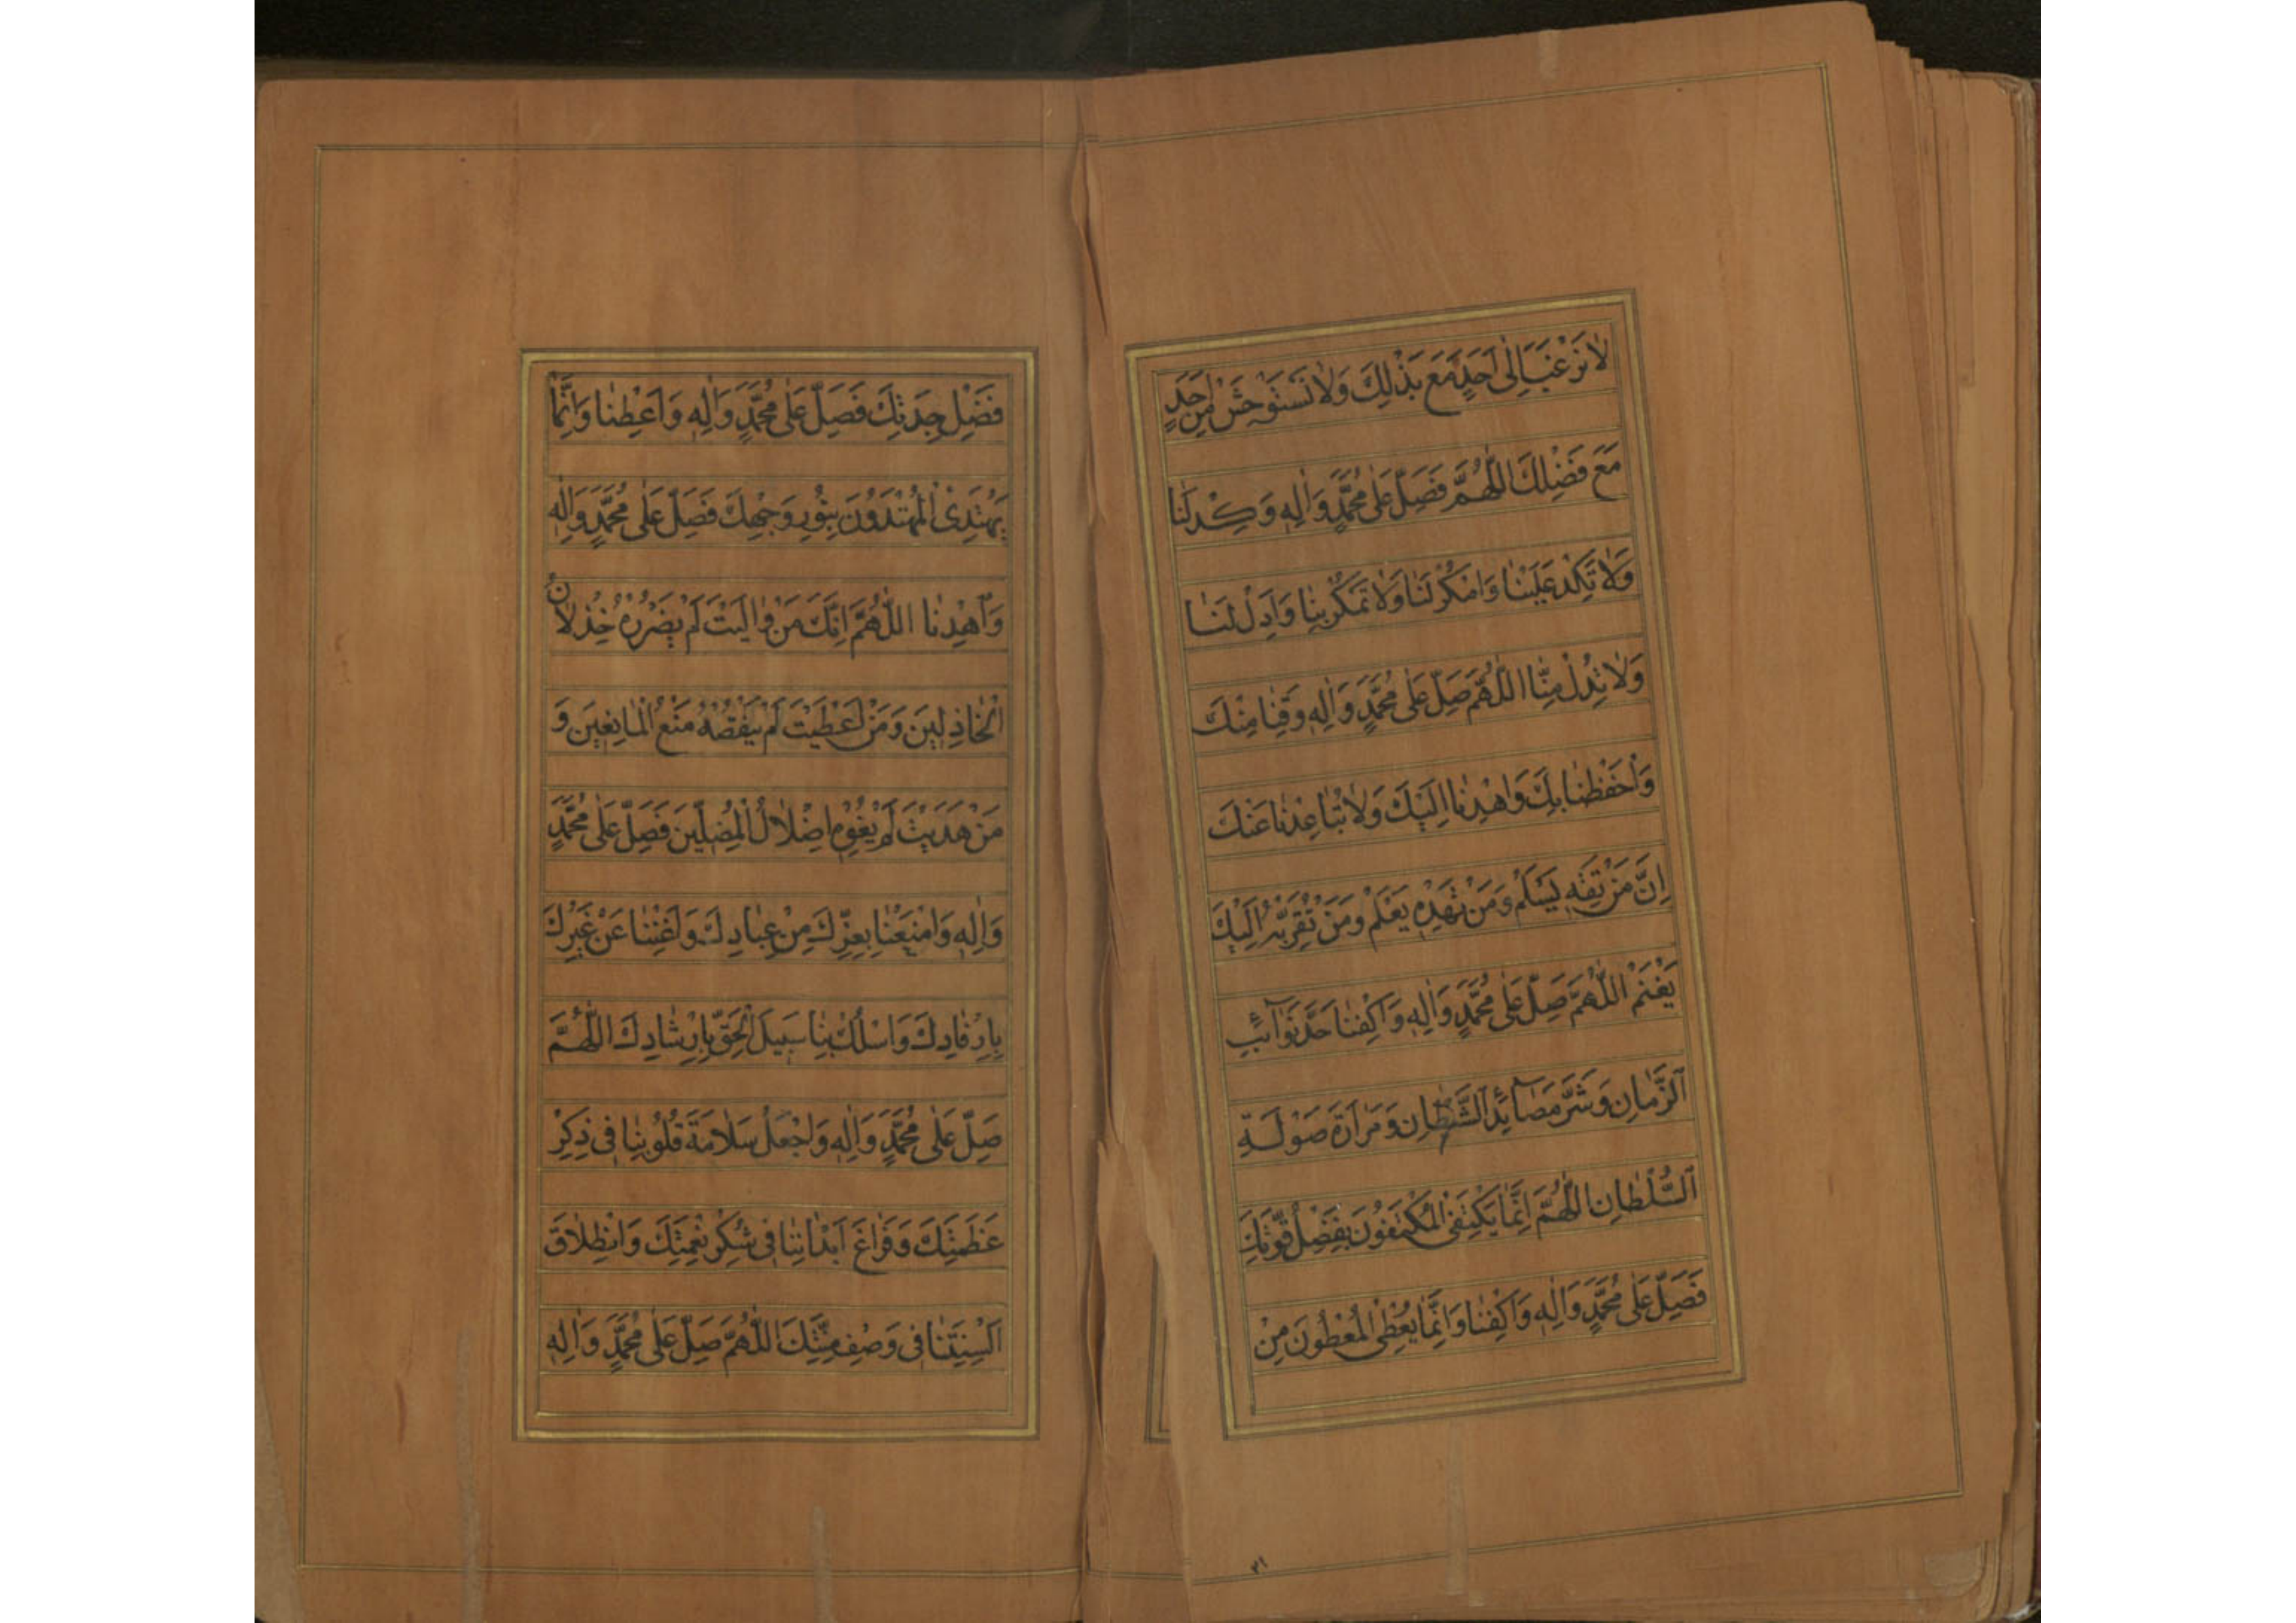 لا نَرْغَبَ اِلٰى اَحَدٍ مَعَ بَذْلِكَ وَلا نَسْتَوْحِشَ مِنْ اَحَدٍ
مَعَ فَضْلِكَ اَللّٰهُمَّ فَصَلِّ عَلٰى مُحَمَّدٍ وَاٰلِهٖ وَكِدْ لَنا
وَلا تَكِدْ عَلَيْنا وَامْكُرْ لَنا وَلا تَمْكُرْ بِنا وَاَدِلْ لَنا
وَلا تُدِلْ مِنّا اَللّٰهُمَّ صَلِّ عَلٰى مُحَمَّدٍ وَاٰلِهٖ وَقِنا مِنْكَ
وَاحْفَظْنا بِكَ وَاهْدِنا اِلَيْكَ وَلا تُباعِدْنا عَنْكَ
اِنَّ مَنْ تَقِهٖ يَسْلَمْ وَمَنْ تَهْدِهٖ يَعْلَمْ وَمَنْ تُقَرِّبْهُ اِلَيْكَ
يَغْنَمْ اَللّٰهُمَّ صَلِّ عَلٰى مُحَمَّدٍ وَاٰلِهٖ وَاكْفِنا حَدَّ نَوآئِبِ
الزَّمانِ وَشَرَّ مَصآئِدِ الشَّيْطانِ وَمَرارَةَ صَوْلَةِ
السُّلْطانِ اَللّٰهُمَّ اِنَّما يَكْتَفِى الْمُكْتَفُونَ بِفَضْلِ قُوَّتِكَ
فَصَلِّ عَلٰى مُحَمَّدٍ وَاٰلِهٖ وَاكْفِنا وَاِنَّما يُعْطِى الْمُعْطُونَ مِنْ
٣١
فَضْلِ جِدَتِكَ فَصَلِّ عَلٰى مُحَمَّدٍ وَاٰلِهٖ وَاَعْطِنا وَاِنَّما
يَهْتَدِى الْمُهْتَدُونَ بِنُورِ وَجْهِكَ فَصَلِّ عَلٰى مُحَمَّدٍ وَاٰلِهٖ
وَاهْدِنا اَللّٰهُمَّ اِنَّكَ مَنْ والَيْتَ لَمْ يَضْرُرْهُ خِذْلانُ
الْخاذِلينَ وَمَنْ اَعْطَيْتَ لَمْ يَنْقُصْهُ مَنْعُ الْمانِعينَ وَ
مَنْ هَدَيْتَ لَمْ يُغْوِهٖ اِضْلالُ الْمُضِلّينَ فَصَلِّ عَلٰى مُحَمَّدٍ
وَاٰلِهٖ وَامْنَعْنا بِعِزِّكَ مِنْ عِبادِكَ وَاَغْنِنا عَنْ غَيْرِكَ
بِاِرْفادِكَ وَاسْلُكْ بِنا سَبيلَ الْحَقِّ بِاِرْشادِكَ اَللّٰهُمَّ
صَلِّ عَلٰى مُحَمَّدٍ وَاٰلِهٖ وَاجْعَلْ سَلامَةَ قُلُوبِنا فى ذِكْرِ
عَظَمَتِكَ وَفَراغَ اَبْدانِنا فى شُكْرِ نِعْمَتِكَ وَانْطِلاقَ
اَلْسِنَتِنا فى وَصْفِ مِنَّتِكَ اَللّٰهُمَّ صَلِّ عَلٰى مُحَمَّدٍ وَاٰلِهٖ